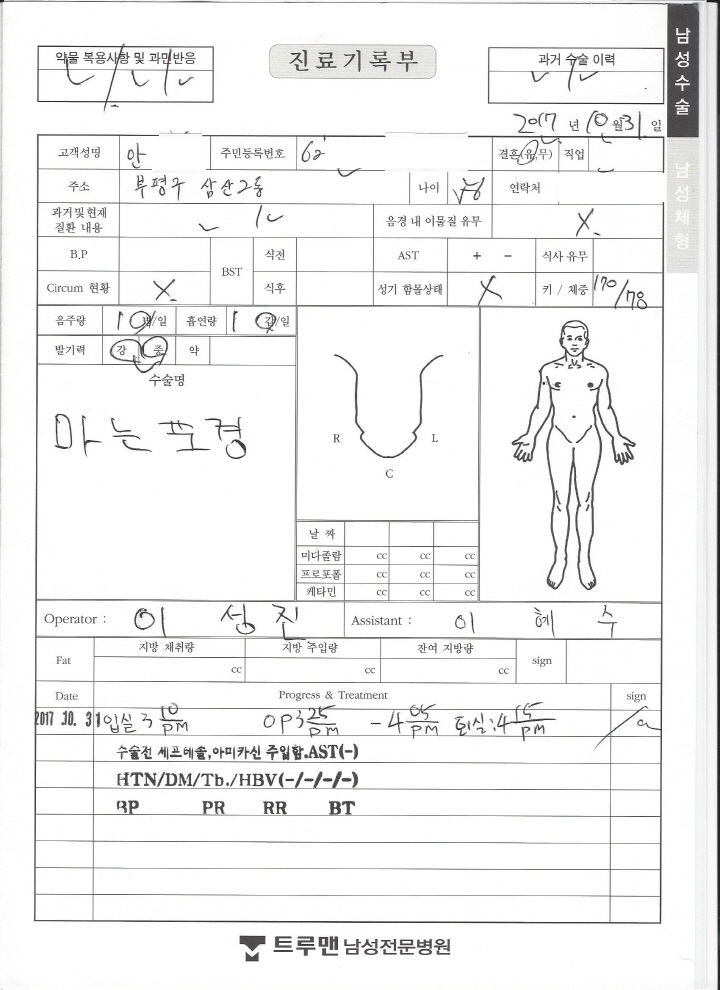 약물 복용사항 및 과민반응
진료기록부
과거 수술 이력
남성수술
남성체형
2017 년 10 월 31 일
고객성명 안 주민등록번호 62 결혼(유,무) 직업
주소 부평구 삼산2동 나이 연락처
과거및현재 질환 내용 음경 내 이물질 유무 X
B.P BST 식전 AST + - 식사 유무
Circum 현황 X 식후 성기 함몰상태 X 키 / 체중 170/78
음주량 1 병/일 흡연량 1 갑/일
발기력 강 중 약
수술명
마는 포경
R L
C
날 짜
미다졸람 cc cc cc
프로포폴 cc cc cc
케타민 cc cc cc
Operator : 이 성 진 Assistant : 이 혜 수
Fat 지방 채취량 cc 지방 주입량 cc 잔여 지방량 cc sign
Date Progress & Treatment sign
2017 .10. 31 입실 3 10 pm OP 3 25 pm - 4 05 pm 퇴실: 4 15 pm
수술전 세프테솔,아미카신 주입함.AST(-)
HTN/DM/Tb./HBV(-/-/-/-)
BP PR RR BT
트루맨 남성전문병원